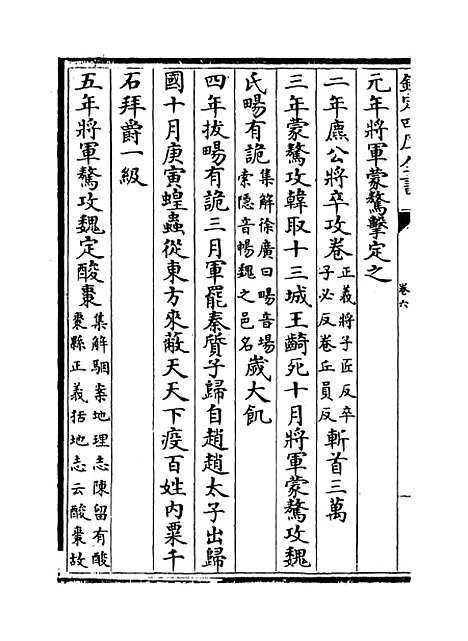 欽定四庫全書
卷六
元年將軍蒙驁擊定之
二年麃公將卒攻卷正義將子匠反卒子必反卷丘員反斬首三萬
三年蒙驁攻韓取十三城王齮死十月將軍蒙驁攻魏
氏暘有詭集解徐廣曰暘音場索隱音暢魏之邑名歲大飢
四年拔暘有詭三月軍罷秦質子歸自趙趙太子出歸
國十月庚寅蝗蟲從東方來蔽天天下疫百姓內粟千
石拜爵一級
五年將軍驁攻魏定酸棗集解駰案地理志陳留有酸棗縣正義括地志云酸棗故